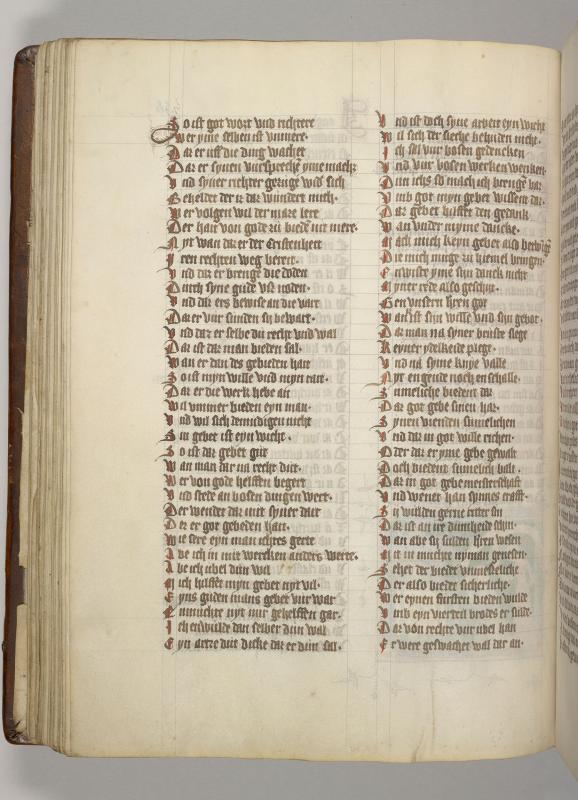 So ist got wort vnd richtere
Wer yme selben ist vnmere.
Dar er uff die ding wachet
Dar er synen vursprechen yme machet
Vnd syner richter geringe wid sich
Beheldet der iz dar wundert mich.
Wer volgen wil der mare lere
Der hait von gode zu biede nit mere.
Nyt wan daz er der Cristenheit
Iren rechten weg bereit.
Vnd daz er brenge die doden
Durch syne gude vz noden.
Vnd daz ers bewise an die vart
Daz er vur sunden sy bewart.
Vnd daz er selbe du recht vnd wal
Daz ist daz man bieden sal.
Wan er dan des gebieden hait
So ist myn wille vnd myn rait.
Daz er die werk hebe an
Wil vmmer bieden eyn man.
Vnd wil sich demudigen nicht
Sin gebet ist eyn wicht.
So ist daz gebet gut
Wan man dar na recht dut.
Wer von gode helffen begert
Vnd stede an bosen dingen wert.
Der wendet daz mit syner dait
Daz er got gebeden hait.
Wie sere eyn man ichtes gerte
Abe ich in mit wercken anders werte.
Abe ich ubel dun wil
Mich hilffet myn gebet nyt vil.
Eyns guden mans gebet vur war
Enmuchte nyt mir gehelffen gar.
Ich enwulde dan selber dun wal
Eyn artze dut dicke daz er dun sal.
Vnd ist doch syne arbeit eyn wicht
Wil sich der sieche behuden nicht.
Ich sal vur bosen gedencken
Vnd vur bosen werken wenken
Dun ichs so mach ich brengen dar
Vmb got myn gebet wissent dar.
Daz gebet hilffet den gedank
Wan vnder myme danck.
Mach mich keyn gebet also bewegen
Die mich muge zu hiemel brengen.
Enwiste yme sin danck nicht
Myner rede also geschicht.
Gen vnsern hren got
Wan ist sin wille vnd sin gebot.
Daz man na syner bruste slege
Keyner ydelkeide plege.
Vnd na syne knye valle
Nyt en gende noch en schalle.
Simeliche biedent daz
Daz got gebe sinen haz.
Synen vienden sumelichen
Vnd daz in got wille richen.
Oder daz er yme gebe gewalt
Doch biedent sumelich balt.
Daz in got gebe meisterschaft
Vnd wenet han synnes crafft.
Sy wulden gerne ritter sin
Daz ist an ire dumheide schin.
Wan abe sy sulden hren wesen
Nit in muchte nyman genesen.
Sehet der biedet vnnesteliche
Der also biedet sicherliche.
Wer eynen fursten bieden wulde
Vmb eyn vierdeil brodes er sulde.
Daz von rechte vur ubel han
Er were geswachet wal dar an.